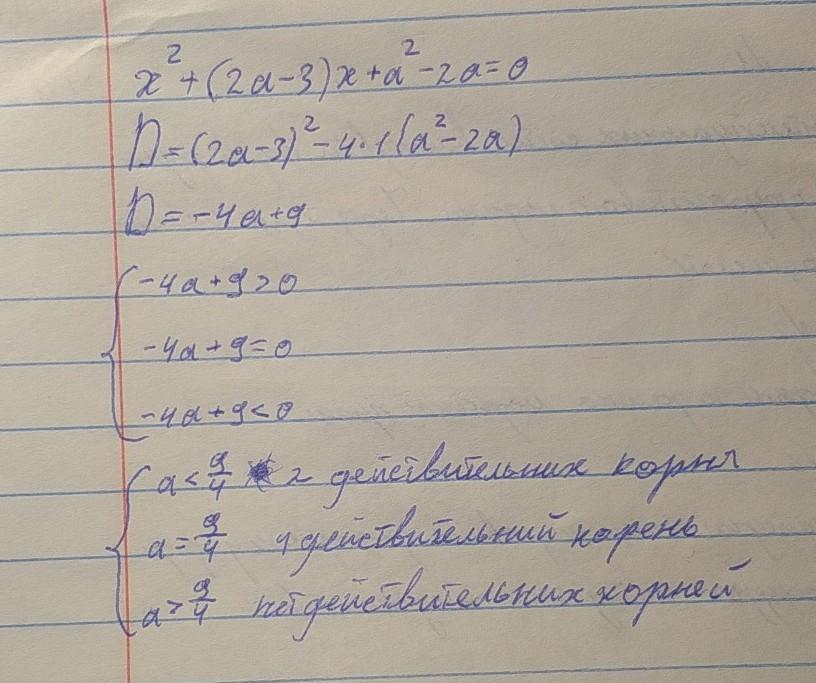 x² + (2a-3)x + a² - 2a = 0
D = (2a-3)² - 4·1(a² - 2a)
D = -4a+9
-4a+9>0
-4a+9=0
-4a+9<0
a < 9/4 2 действительних корня
a = 9/4 1 действительний корень
a > 9/4 нет действительних корней